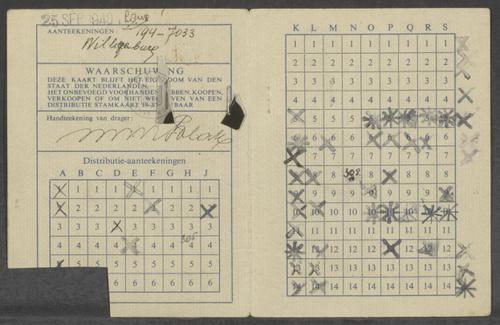 25 SEP 1940
AANTEEKENINGEN: 194-7033
WAARSCHUWING
DEZE KAART BLIJFT HET EIGENDOM VAN DEN
STAAT DER NEDERLANDEN.
HET ONBEVOEGD VOORHANDEN HEBBEN, KOOPEN,
VERKOOPEN OF OM NIET WEGGEVEN VAN EEN
DISTRIBUTIE STAMKAART IS STRAFBAAR
Handteekening van drager:
Distributie-aanteekeningen
A B C D E F G H J
1 1 1 1 1 1 1 1 1
2 2 2 2 2 2 2 2 2
3 3 3 3 3 3 3 3 3
4 4 4 4 4 4 4 4 4
5 5 5 5 5 5 5 5
6 6 6 6 6 6 6
K L M N O P Q R S
1 1 1 1 1 1 1 1 1
2 2 2 2 2 2 2 2 2
3 3 3 3 3 3 3 3 3
4 4 4 4 4 4 4 4 4
5 5 5 5 5 5 5 5 5
6 6 6 6 6 6 6 6 6
7 7 7 7 7 7 7 7 7
8 8 8 8 8 8 8 8
9 9 9 9 9 9 9 9 9
10 10 10 10 10 10 10 10 10
11 11 11 11 11 11 11 11 11
12 12 12 12 12 12 12 12 12
13 13 13 13 13 13 13 13 13
14 14 14 14 14 14 14 14 14